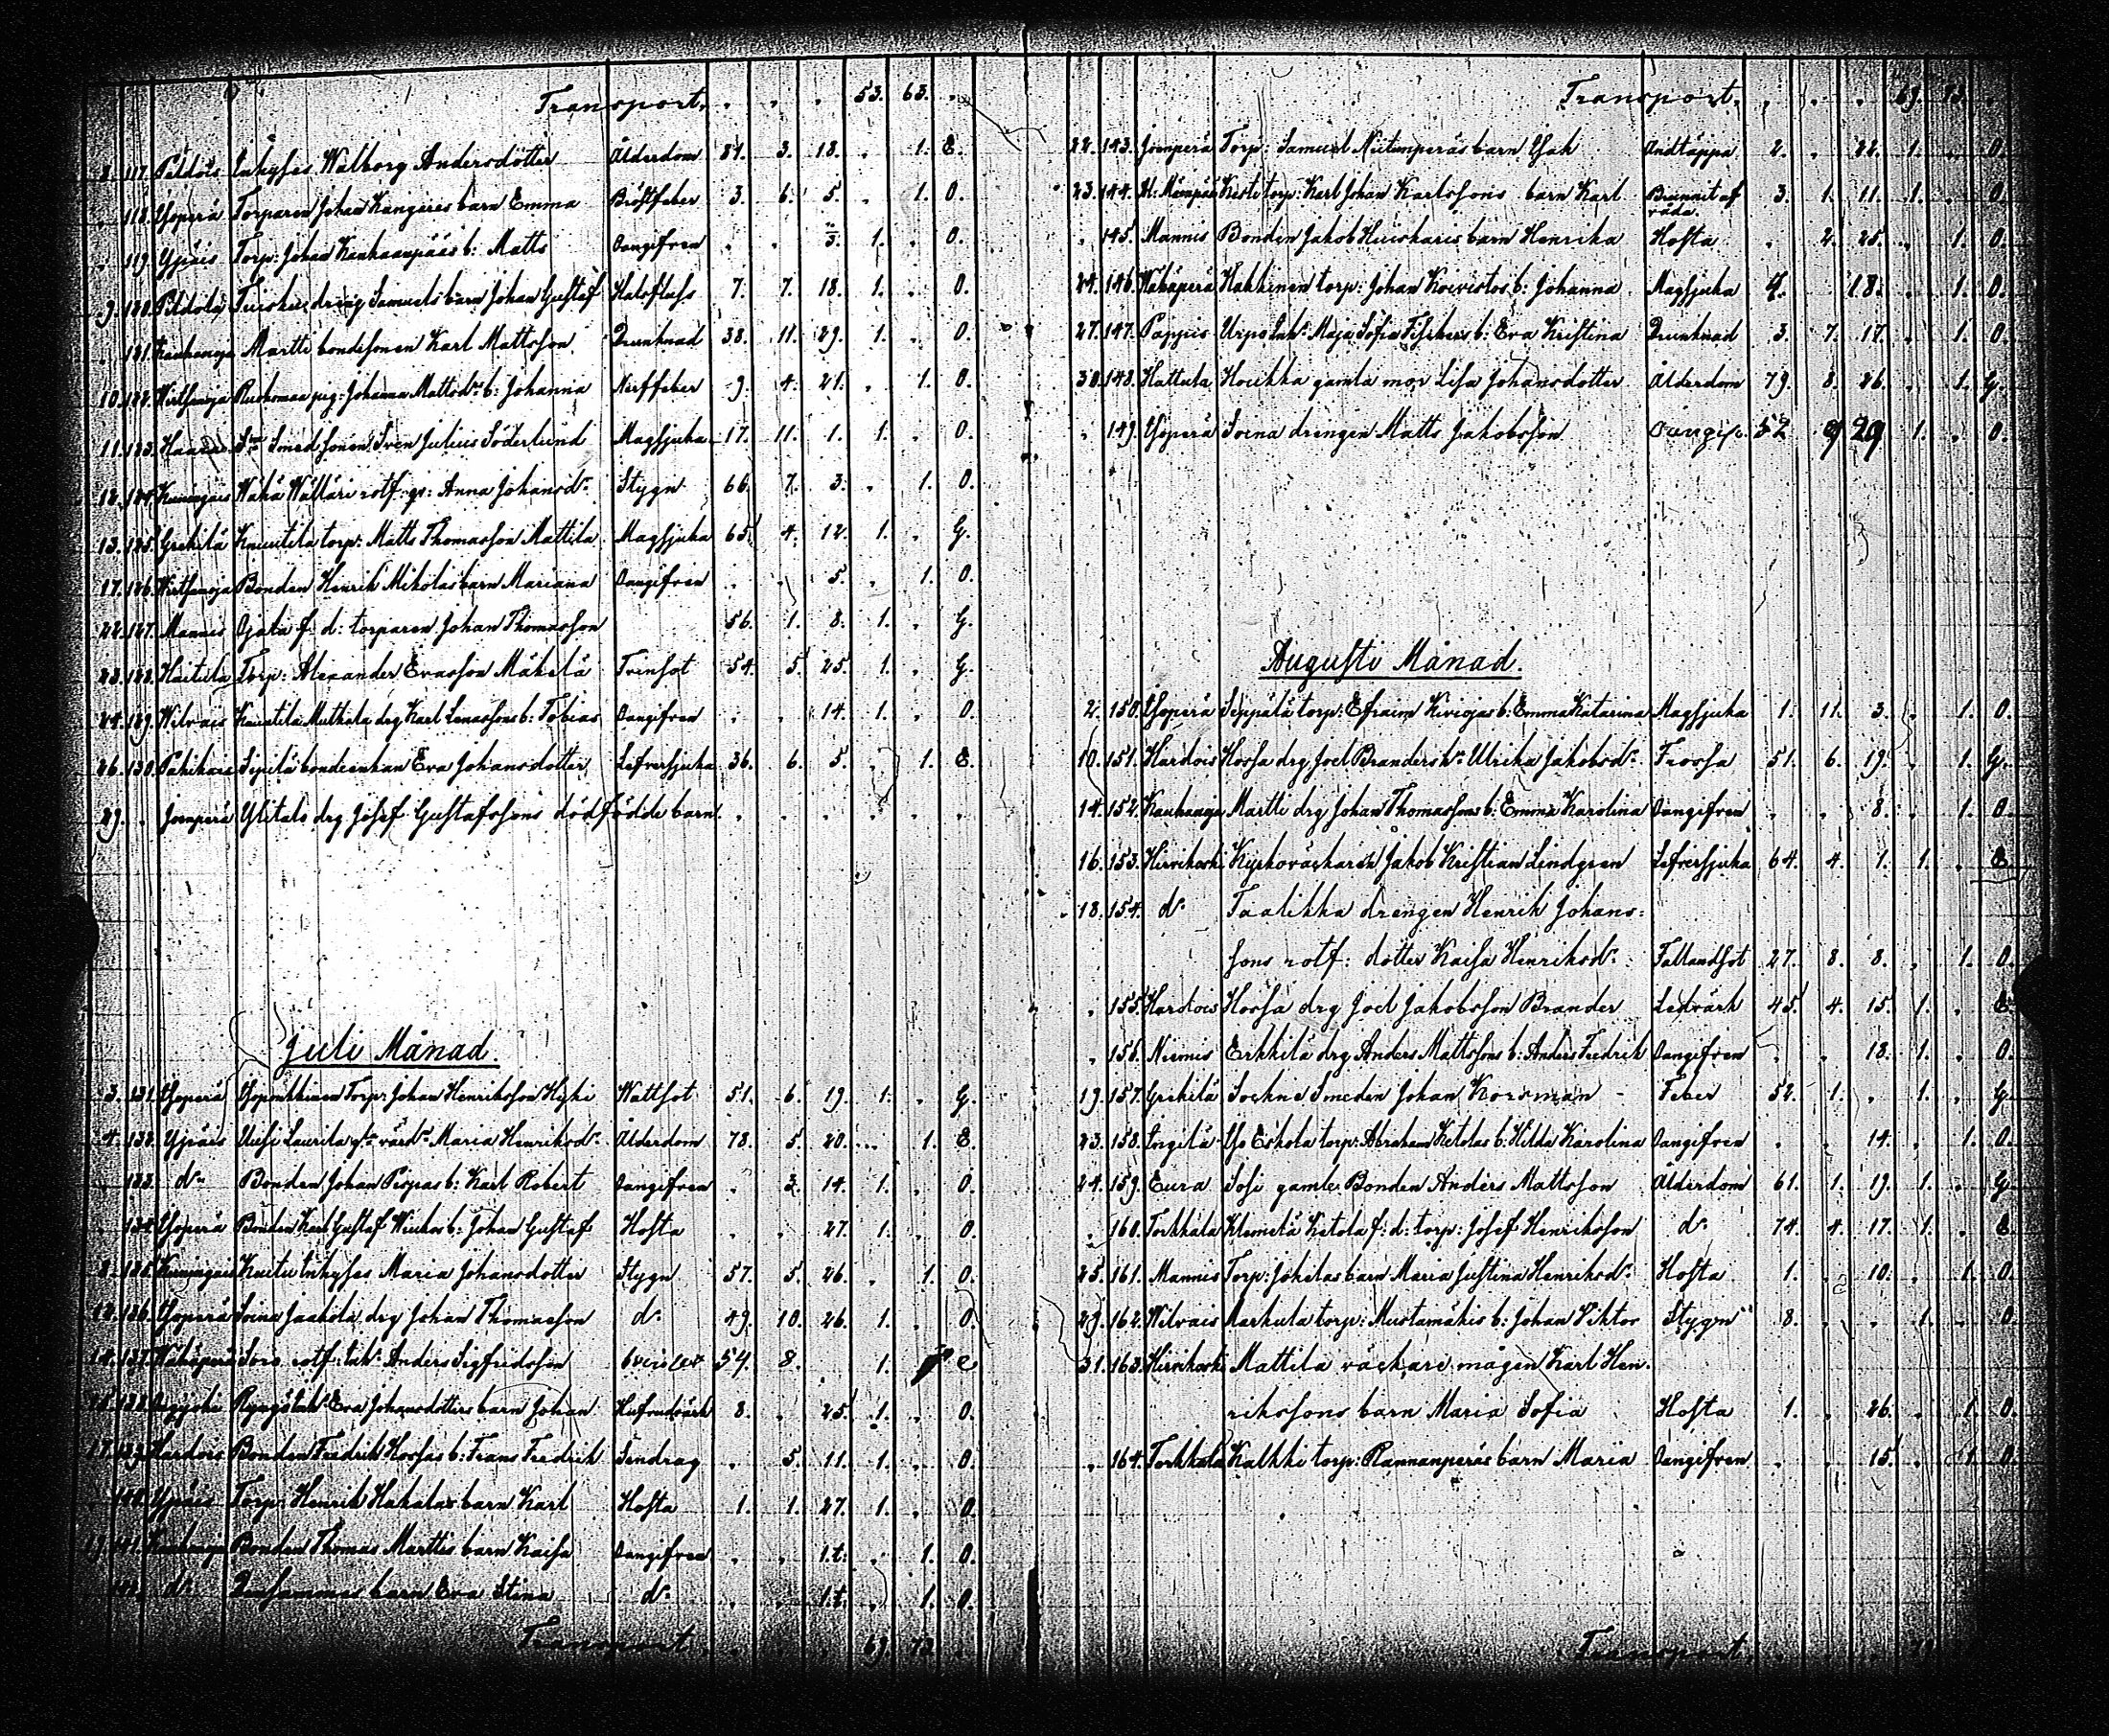 Transport. 53. 63.
8. 117. Inhyses Walborg Andersdotter Ålderdom 81. 3. 18. 1. E.
118. Ysperä Torparen Johan Kangares barn Emma Bröstfeber 3. 6. 5. 1. O.
119. Ypäis Torp: Johan Kankaanpääs b: Matts Oangifven 3. 1. O.
9. 120. dräng Samuels barn Johan Gustaf Halsfluss 7. 7. 18. 1. O.
121. Martti bondesonen Karl Mattsson Drunknad 38. 11. 29. 1. O.
10. 122. pig: Johanna Mattsdr b: Johanna Nerffeber 9. 4. 21. 1. O.
11. 123. Smedsonen Sven Julius Söderlund Magsjuka 17. 11. 1. 1. O.
12. 124. Wähä Wälläri rotf: gr: Anna Johansdr Stygn 66. 7. 3. 1. O.
13. 125. Grekilä Knuutila torp: Matts Thomasson Mattila Magsjuka 65. 4. 12. 1. G.
17. 126. Bonden Henrik Mikolas barn Mariana Oangifven 5. 1. O.
22. 127. Mannis Ojala f: d: torparen Johan Thomasson 56. 1. 8. 1. G.
23. 128. Torp: Alexander Evasson Mäkelä Trensot 54. 5 25. 1. G.
24. 129. Wilvais Knuutila Muthala drg Karl Lenassons b: Tobias Oangifven 14. 1. O.
26. 130. Sipilä bondeenkan Eva Johansdotter Lefversjuka 36. 6. 5. 1. E.
29. Jomperä Ylitalo drg Josef Gustafssons dödfödde barn.
Juli Månad.
3. 131. Ysperä Torp: Johan Henriksson Hyhi Wattsot 51. 6. 19. 1. G.
4. 132. Ypäis Uusi Laurila gla värdn Maria Henriksdr Ålderdom 78. 5. 20. 1. E.
133. do Bonden Johan Pispas b: Karl Robert Oangifven 3. 14. 1. O.
134. Ysperä Bonden Karl Gustaf b: Johan Gustaf Hosta 27. 1. O.
8. 135. Kuitu Inhyses Maria Johansdotter Stygn 57. 5. 26. 1. O.
12. 136. Ysperä Soina Jaakola drg Johan Thomasson do 49. 10. 26. 1. O.
14. 137. rotf: Inh: Anders Sigfridsson 54. 8. 1. e
15. 138. Inh: Eva Johansdotters barn Johan Hufvudvärk 8. 25. 1. O.
17. 139. Hardois Bonden Fredrik Horsas b: Frans Fredrik Sendrag 5. 11. 1. O.
140. Ypäis Torp: Henrik Hakalas barn Karl Hosta 1. 1. 27. 1. O.
19. 141. Bonden Thomas Marttis barn Kaisa Oangifven 1.t. 1. O.
142. do barn Eva Stina do 1.t. 1. O.
Transport. 69. 73.
Transport. 69. 73.
22. 143. Jomperä Torp: Samuel Niitunperäs barn Isak Andtäppa 2. 22. 1. O.
23. 144. torp: Karl Johan Karlssons barn Karl Brunnit af våda 3. 1. 11. 1. O.
145. Mannis Bonden Jakob Huiskaris barn Henrika Hosta 2. 25. 1. O.
24. 146. Wähäperä Hakkinen torp: Johan Koivistos b: Johanna Magsjuka 4. 18. 1. O.
27. 147. Pappis Inh: Maja Sofia Fiskers b: Eva Kristina Drunknad 3. 7. 17. 1. O.
30. 148. Hattula Houkka gamla mor Lisa Johansdotter Ålderdom 79. 8. 26. 1. G.
149. Ysperä Soina drengen Matts Jakobsson Oangif. 52 9 29 1. O.
Augusti Månad.
2. 150. Ysperä Seppälä torp: Efraim Kiviojas b: Emma Katarina Magsjuka 1. 11. 3. 1. O.
10. 151. Hardois Horsa drg Joel Branders hu Ulrika Jakobsdr Frossa 51. 6. 19. 1. G.
14. 152. Martti drg Johan Thomassons b: Emma Karolina Oangifven 8. 1. O.
16. 153. Hirvikoski Kyrkoväktaren Jakob Kristian Lindgren Lefversjuka 64. 4. 1. 1. E
18. 154. do Taalikka drengen Henrik Johans-
sons rotf: dotter Kaisa Henriksdr Fallandsot 27. 8. 8. 1. O.
155. Hardois Horsa drg Joel Jakobsson Brander Ledvärk 45. 4. 15. 1. E
156. Niemis Erkkilä drg Anders Mattssons b: Anders Fredrik Oangifven 18. 1. O.
19. 157. Grekilä Sockne Smeden Johan Korsman Feber 52. 1. 1. G
23. 158. Ingilä Iso Eskola torp: Abraham Ketolas b: Hilda Karolina Oangifven 14. 1. O.
24. 159. Eura Sosi gamle Bonden Anders Mattsson Ålderdom 61. 1. 19. 1. G
160. Torkkala Klemelä Ketola f: d: torp: Josef Henriksson do 74. 4. 17. 1. E
25. 161. Mannis Torp: Jokilas barn Maria Justina Henriksdr Hosta 1. 10. 1. O.
29. 162. Wilvais Markula torp: Mustamäkis b: Johan Viktor Stygn 8. 1. O.
31. 163. Hirvikoski Mattila väckare mågen Karl Hen-
rikssons barn Maria Sofia Hosta 1. 26. 1. O.
164. Torkkala Kalkki torp: Rannanperäs barn Maria Oangifven 15. 1. O.
Transport.